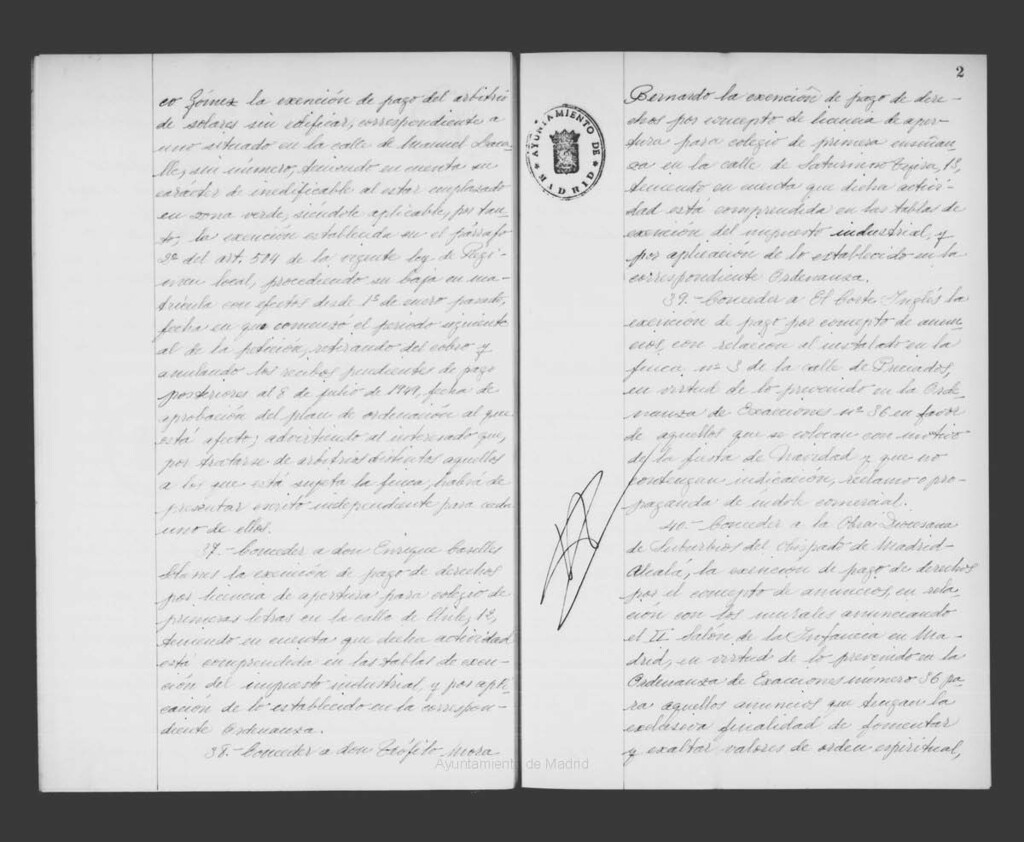 co Gómez la exención de pago del arbitrio
de solares sin edificar, correspondiente a
uno situado en la calle de Manuel Laca-
lle, sin número, teniendo en cuenta su
carácter de inedificable al estar emplazado
en zona verde, siéndole aplicable, por tan-
to, la exención establecida en el párrafo
2º del art. 594 de la vigente ley de Régi-
men local, procediendo su baja en ma-
trícula con efectos desde 1º de enero pasado,
fecha en que comenzó el periodo siguiente
al de la petición, retirando del cobro y
anulando los recibos pendientes de pago
posteriores al 8 de julio de 1949, fecha de
aprobación del plan de ordenación al que
está afecto; advirtiendo al interesado que,
por tratarse de arbitrios distintos aquellos
a los que está sujeta la finca, habrá de
presentar escrito independiente para cada
uno de ellos.
37.- Conceder a don Enrique Caselles
la exención de pago de derechos
por licencia de apertura para colegio de
primeras letras en la calle de Chile, 13,
teniendo en cuenta que dicha actividad
está comprendida en las tablas de exen-
ción del impuesto industrial, y por apli-
cación de lo establecido en la correspon-
diente Ordenanza.
38.- Conceder a don Teófilo Mora
2
Bernardo la exención de pago de dere-
chos por concepto de licencia de aper-
tura para colegio de primera enseñan-
za en la calle de Saturnino Tejera, 13,
teniendo en cuenta que dicha activi-
dad está comprendida en las tablas de
exención del impuesto industrial, y
por aplicación de lo establecido en la
correspondiente Ordenanza.
39.- Conceder a El Corte Inglés la
exención de pago por concepto de anun-
cios, con relación al instalado en la
finca nº 3 de la calle de Preciados,
en virtud de lo prevenido en la Orde-
nanza de Exacciones nº 36 en favor
de aquellos que se colocan con motivo
de la fiesta de Navidad y que no
contengan indicación, reclamo o pro-
paganda de índole comercial.
40.- Conceder a la Obra Diocesana
de Suburbios del Obispado de Madrid-
Alcalá, la exención de pago de derechos
por el concepto de anuncios, en rela-
ción con los murales anunciando
el II Salón de la Infancia en Ma-
drid, en virtud de lo prevenido en la
Ordenanza de Exacciones número 36 pa-
ra aquellos anuncios que tengan la
exclusiva finalidad de fomentar
y exaltar valores de orden espiritual,
AYUNTAMIENTO DE MADRID
Ayuntamiento de Madrid